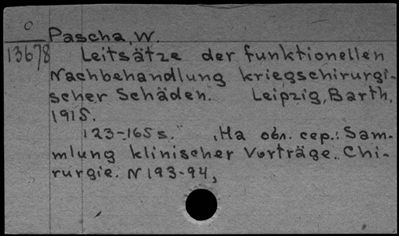 O
Pascha, W.
13678 Leitsätze der funktionellen
Nachbehandlung kriegschirurgi-
scher Schäden. Leipzig, Barth,
1915.
123-165 s. На обл. сер.: Sam-
mlung klinischer Vorträge. Chi-
rurgie. N 193-94,